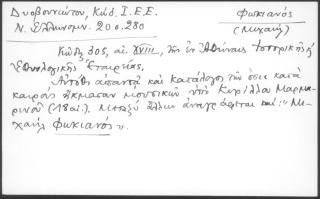 Δυοβουνιώτου, Κώδ. Ι.Ε.Ε.
Ν. Ἑλληνομν. 20 σ. 280
Φωκιανός
(Μιχαήλ)
Κώδιξ 305, αἰ. XVIII, τῆς ἐν Ἀθήναις Ἱστορικῆς κ
Ἐθνολογικῆς Ἑταιρείας.
Αὐτόθι ἀπαντᾷ καὶ κατάλογος τῶν ὅσοι κατὰ
καιροὺς ἤκμασαν μουσικῶν ὑπὸ Κυρίλλου Μαρμα-
ρινοῦ (18 αἰ.). Μεταξὺ ἄλλων ἀναγράφεται καί: "Μι-
χαὴλ Φωκιανός".